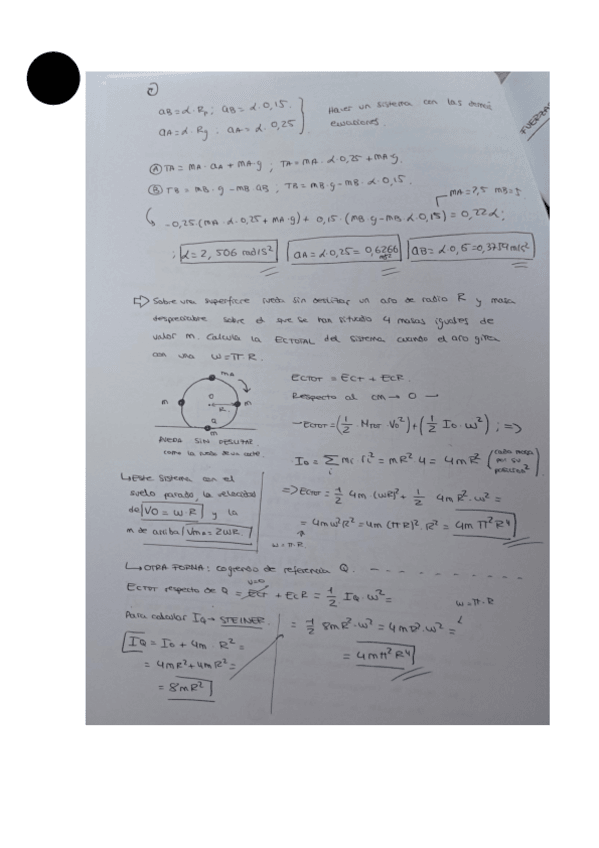 aB = α·Rp ; aB = α·0,15.
aA = α·Rg ; aA = α·0,25
Hacer un sistema con las
ecuaciones.
FUERZA
Ⓐ TA = mA·aA + mA·g ; TA = mA·α·0,25 + mA·g.
Ⓑ TB = mB·g - mB·aB ; TB = mB·g - mB·α·0,15.
mA = 7,5 mB = 
-0,25·(mA·α·0,25 + mA·g) + 0,15·(mB·g - mB·α·0,15) = 0,22α ;
; α = 2,506 rad/s² aA = α·0,25 = 0,6266 m/s² aB = α·0,15 = 0,3759 m/s²
⇒ Sobre una superficie rueda sin deslizar un aro de radio R y masa
despreciable sobre el que se han situado 4 masas iguales de
valor m. Calcula la ECTOTAL del sistema cuando el aro gira
con una ω = π·R.
mA
ECTOT = ECT + ECR.
Respecto al CM → O
m O R m
→ ECTOT = (1/2 · MTOT · VO²) + (1/2 IO·ω²) ; ⇒
Q
m
RUEDA SIN DESLIZAR
como la rueda de un coche.
IO = Σ mi ri² = mR²·4 = 4mR² (cada masa por su posición²)
i
↳ Este sistema con el
suelo parado, la velocidad
de VO = ω·R y la
m de arriba VmA = 2ωR.
⇒ ECTOT = 1/2 4m (ωR)² + 1/2 4mR²·ω² =
= 4mω²R² = 4m (πR)²·R² = 4mπ²R⁴
ω = π·R
↳ OTRA FORMA: cogiendo de referencia Q.
ECTOT respecto de Q = ECT + ECR = 1/2 IQ·ω² =
V=0
ω = π·R
Para calcular IQ → STEINER.
= 1/2 8mR²·ω² = 4mR²·ω² =
IQ = IO + 4m·R² =
= 4mR² + 4mR² =
= 4mπ²R⁴
= 8mR²